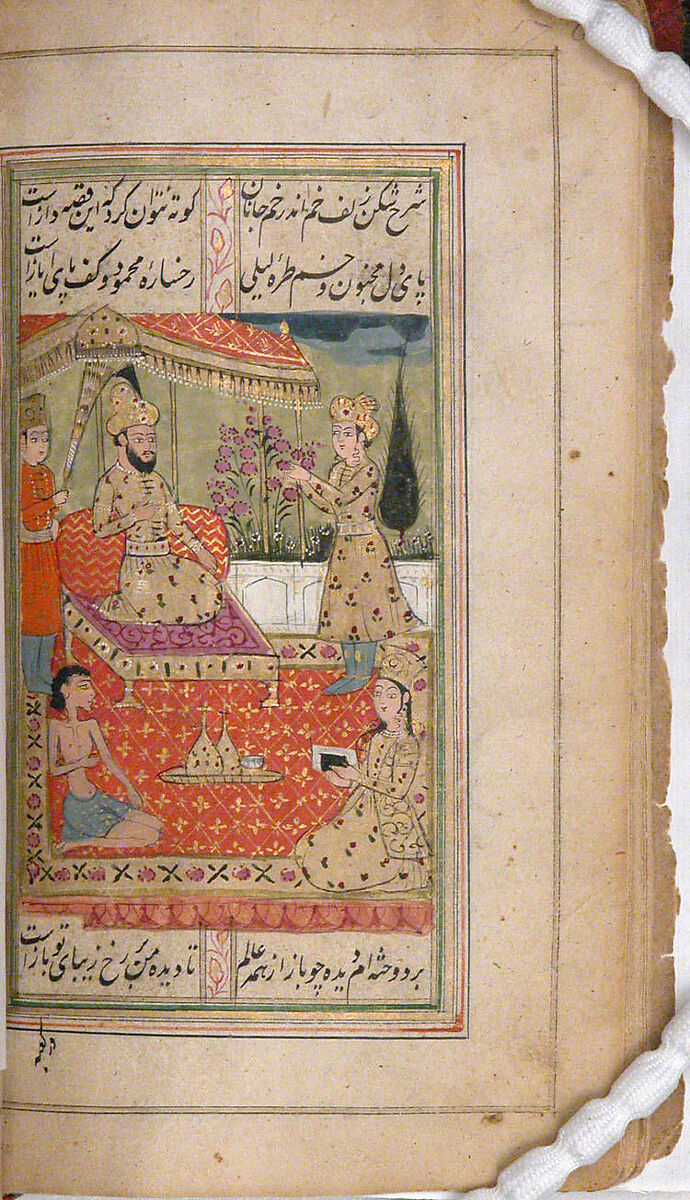 شرح شکن زلف خم اندر خم جانان
کوته نتوان کرد که این قصه دراز است
پای دل مجنون و خم طرهٔ لیلی
رخسارهٔ محمود و کف پای ایاز است
بردوخته‌ام دیده چو باز از همه عالم
تا دیده من بر رخ زیبای تو باز است
در کعبه